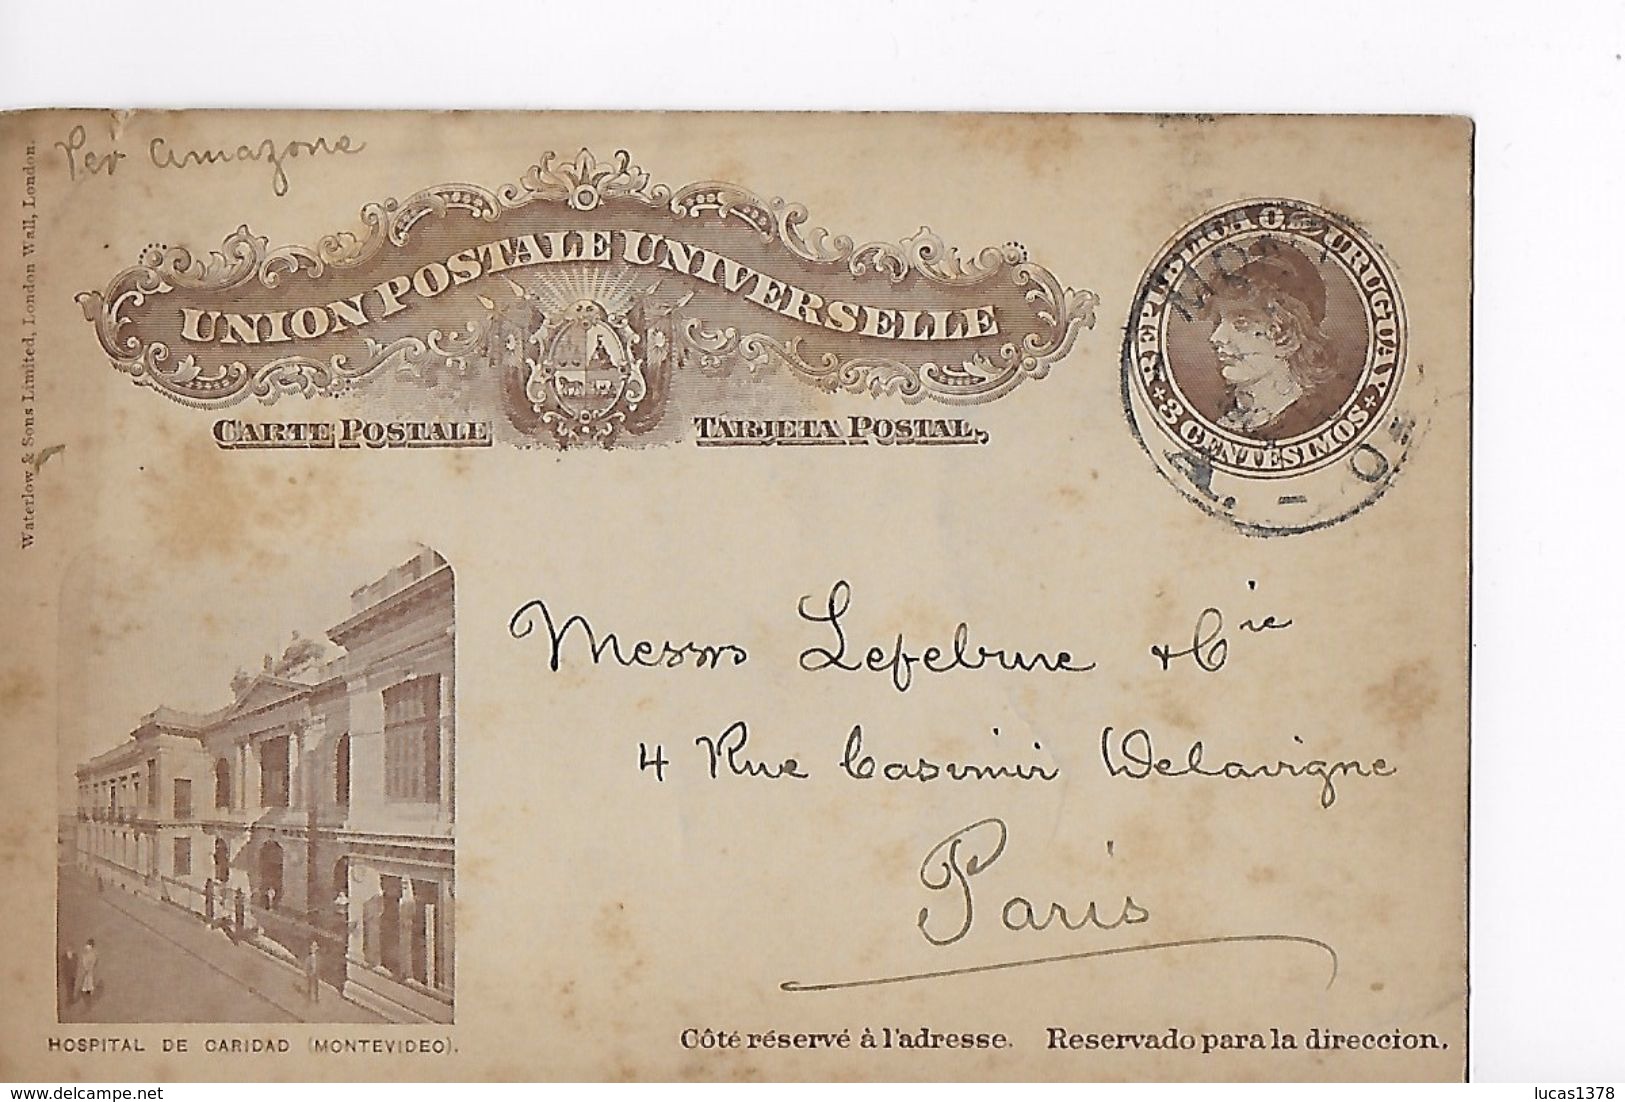 Per Amazone
Waterlow & Sons Limited, London Wall, London.
UNION POSTALE UNIVERSELLE
CARTE POSTALE TARJETA POSTAL
REPUBLICA O. URUGUAY
3 CENTESIMOS
A. - O
Messrs Lefebvre & Cie
4 Rue Casimir Delavigne
Paris
HOSPITAL DE CARIDAD (MONTEVIDEO).
Côté réservé à l'adresse. Reservado para la direccion.
lucas1378
www.delcampe.net